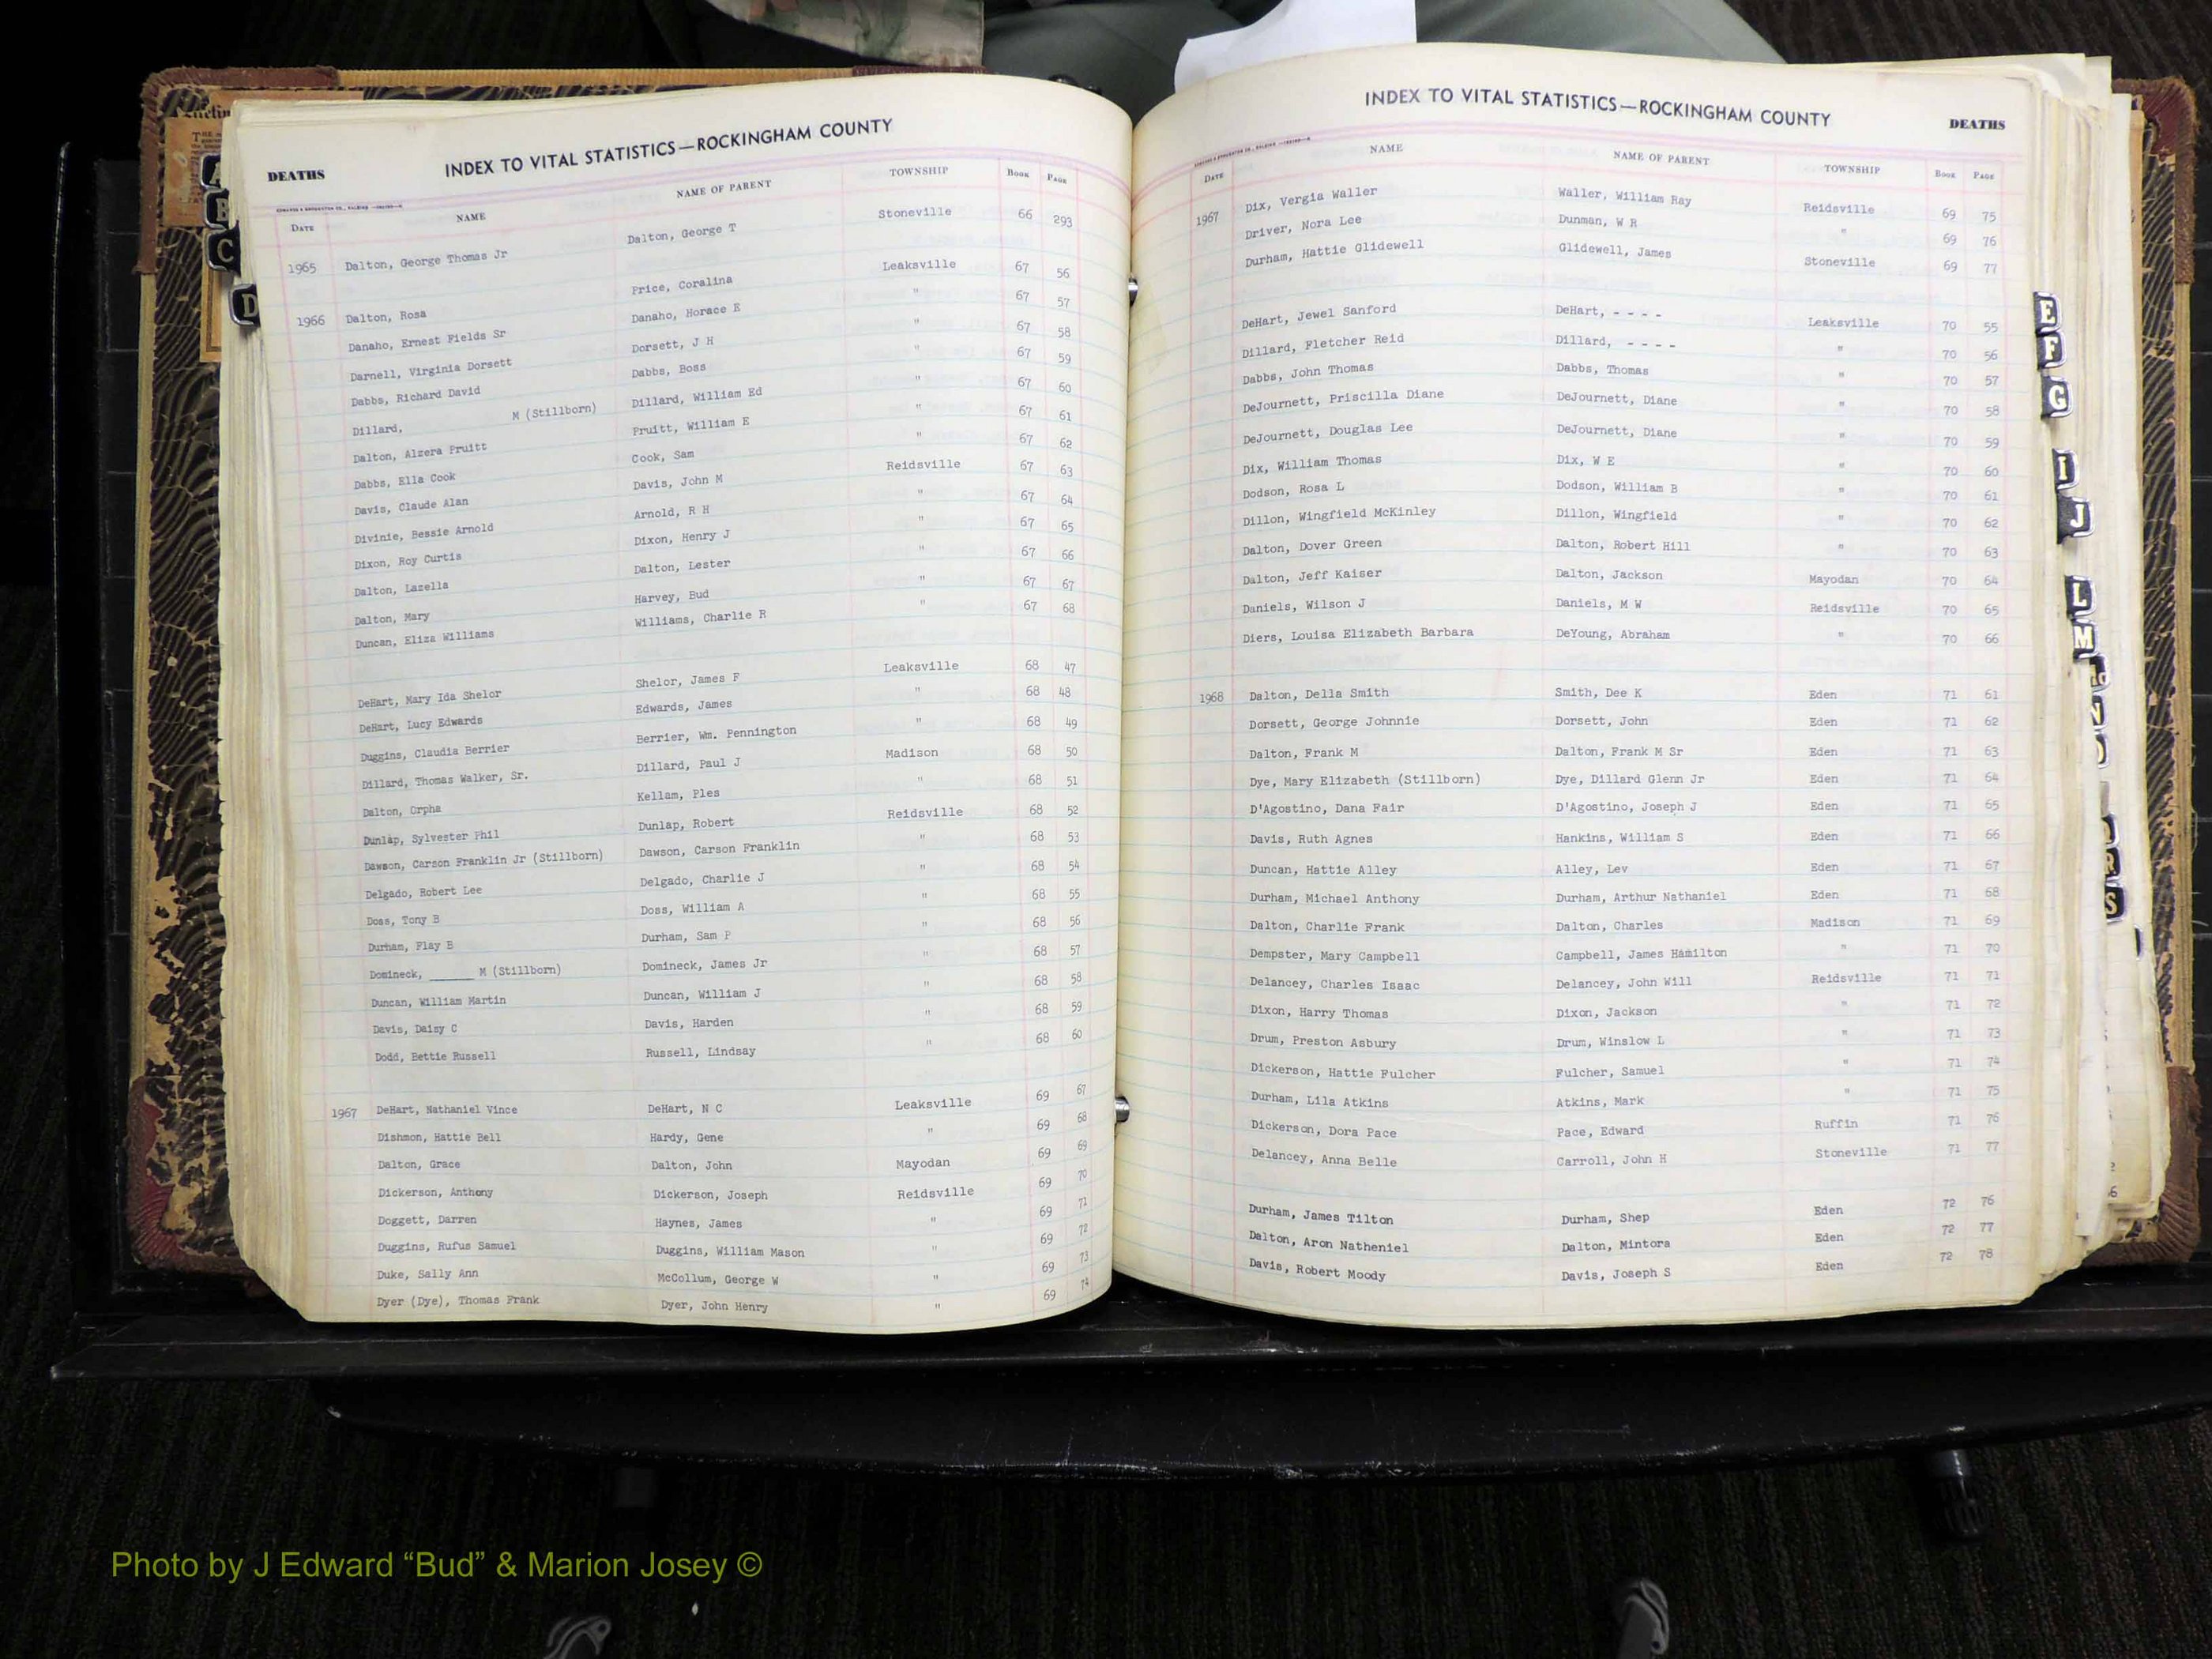 DEATHS
INDEX TO VITAL STATISTICS—ROCKINGHAM COUNTY
DATE NAME NAME OF PARENT TOWNSHIP BOOK PAGE
1965 Dalton, George Thomas Jr Dalton, George T Stoneville 66 293
1966 Dalton, Rosa Price, Coralina Leaksville 67 56
Danaho, Ernest Fields Sr Danaho, Horace E " 67 57
Darnell, Virginia Dorsett Dorsett, J H " 67 58
Dabbs, Richard David Dabbs, Boss " 67 59
Dillard, M (Stillborn) Dillard, William Ed " 67 60
Dalton, Alzera Pruitt Pruitt, William E " 67 61
Dabbs, Ella Cook Cook, Sam " 67 62
Davis, Claude Alan Davis, John M Reidsville 67 63
Divinie, Bessie Arnold Arnold, R H " 67 64
Dixon, Roy Curtis Dixon, Henry J " 67 65
Dalton, Lazella Dalton, Lester " 67 66
Dalton, Mary Harvey, Bud " 67 67
Duncan, Eliza Williams Williams, Charlie R " 67 68
DeHart, Mary Ida Shelor Shelor, James F Leaksville 68 47
DeHart, Lucy Edwards Edwards, James " 68 48
Duggins, Claudia Berrier Berrier, Wm. Pennington " 68 49
Dillard, Thomas Walker, Sr. Dillard, Paul J Madison 68 50
Dalton, Orpha Kellam, Ples " 68 51
Dunlap, Sylvester Phil Dunlap, Robert Reidsville 68 52
Dawson, Carson Franklin Jr (Stillborn) Dawson, Carson Franklin " 68 53
Delgado, Robert Lee Delgado, Charlie J " 68 54
Doss, Tony B Doss, William A " 68 55
Durham, Flay B Durham, Sam P " 68 56
Domineck, ______ M (Stillborn) Domineck, James Jr " 68 57
Duncan, William Martin Duncan, William J " 68 58
Davis, Daisy C Davis, Harden " 68 59
Dodd, Bettie Russell Russell, Lindsay " 68 60
1967 DeHart, Nathaniel Vince DeHart, N C Leaksville 69 67
Dishmon, Hattie Bell Hardy, Gene " 69 68
Dalton, Grace Dalton, John Mayodan 69 69
Dickerson, Anthony Dickerson, Joseph Reidsville 69 70
Doggett, Darren Haynes, James " 69 71
Duggins, Rufus Samuel Duggins, William Mason " 69 72
Duke, Sally Ann McCollum, George W " 69 73
Dyer (Dye), Thomas Frank Dyer, John Henry " 69 74
INDEX TO VITAL STATISTICS—ROCKINGHAM COUNTY
DEATHS
DATE NAME NAME OF PARENT TOWNSHIP BOOK PAGE
1967 Dix, Vergia Waller Waller, William Ray Reidsville 69 75
Driver, Nora Lee Dunman, W R " 69 76
Durham, Hattie Glidewell Glidewell, James Stoneville 69 77
DeHart, Jewel Sanford DeHart, - - - - Leaksville 70 55
Dillard, Fletcher Reid Dillard, - - - - " 70 56
Dabbs, John Thomas Dabbs, Thomas " 70 57
DeJournett, Priscilla Diane DeJournett, Diane " 70 58
DeJournett, Douglas Lee DeJournett, Diane " 70 59
Dix, William Thomas Dix, W E " 70 60
Dodson, Rosa L Dodson, William B " 70 61
Dillon, Wingfield McKinley Dillon, Wingfield " 70 62
Dalton, Dover Green Dalton, Robert Hill " 70 63
Dalton, Jeff Kaiser Dalton, Jackson Mayodan 70 64
Daniels, Wilson J Daniels, M W Reidsville 70 65
Diers, Louisa Elizabeth Barbara DeYoung, Abraham " 70 66
1968 Dalton, Della Smith Smith, Dee K Eden 71 61
Dorsett, George Johnnie Dorsett, John Eden 71 62
Dalton, Frank M Dalton, Frank M Sr Eden 71 63
Dye, Mary Elizabeth (Stillborn) Dye, Dillard Glenn Jr Eden 71 64
D'Agostino, Dana Fair D'Agostino, Joseph J Eden 71 65
Davis, Ruth Agnes Hankins, William S Eden 71 66
Duncan, Hattie Alley Alley, Lev Eden 71 67
Durham, Michael Anthony Durham, Arthur Nathaniel Eden 71 68
Dalton, Charlie Frank Dalton, Charles Madison 71 69
Dempster, Mary Campbell Campbell, James Hamilton " 71 70
Delancey, Charles Isaac Delancey, John Will Reidsville 71 71
Dixon, Harry Thomas Dixon, Jackson " 71 72
Drum, Preston Asbury Drum, Winslow L " 71 73
Dickerson, Hattie Fulcher Fulcher, Samuel " 71 74
Durham, Lila Atkins Atkins, Mark " 71 75
Dickerson, Dora Pace Pace, Edward Ruffin 71 76
Delancey, Anna Belle Carroll, John H Stoneville 71 77
Durham, James Tilton Durham, Shep Eden 72 76
Dalton, Aron Natheniel Dalton, Mintora Eden 72 77
Davis, Robert Moody Davis, Joseph S Eden 72 78
A
B
C
D
E
F
G
I
J
L
M
N
R
S
Photo by J Edward “Bud” & Marion Josey ©